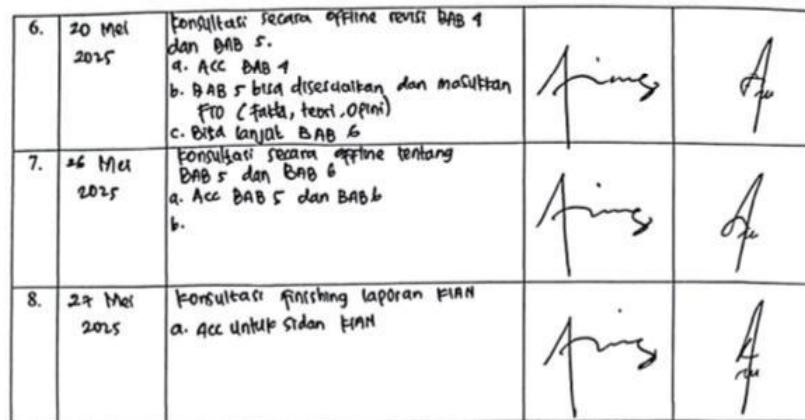 6.
20 Mei
2025
konsultasi secara offline revisi BAB 4
dan BAB 5.
a. Acc BAB 4
b. BAB 5 bisa disesuaikan dan masukkan
FTO (fakta, teori, opini)
c. Bisa lanjut BAB 6
7.
26 Mei
2025
konsultasi secara offline tentang
BAB 5 dan BAB 6
a. Acc BAB 5 dan BAB 6
b.
8.
27 Mei
2025
konsultasi finishing laporan KIAN
a. Acc untuk sidan KIAN